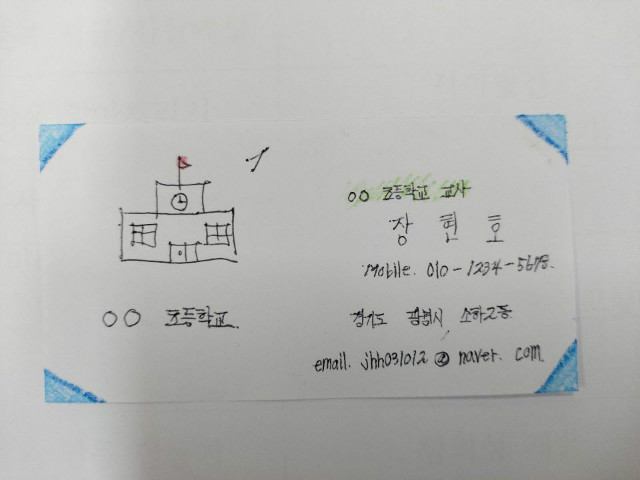 OO 초등학교
OO 초등학교 교사
장 현 호
Mobile. 010-1234-5678.
경기도 광명시 소하2동
email. jhh031012@naver.com